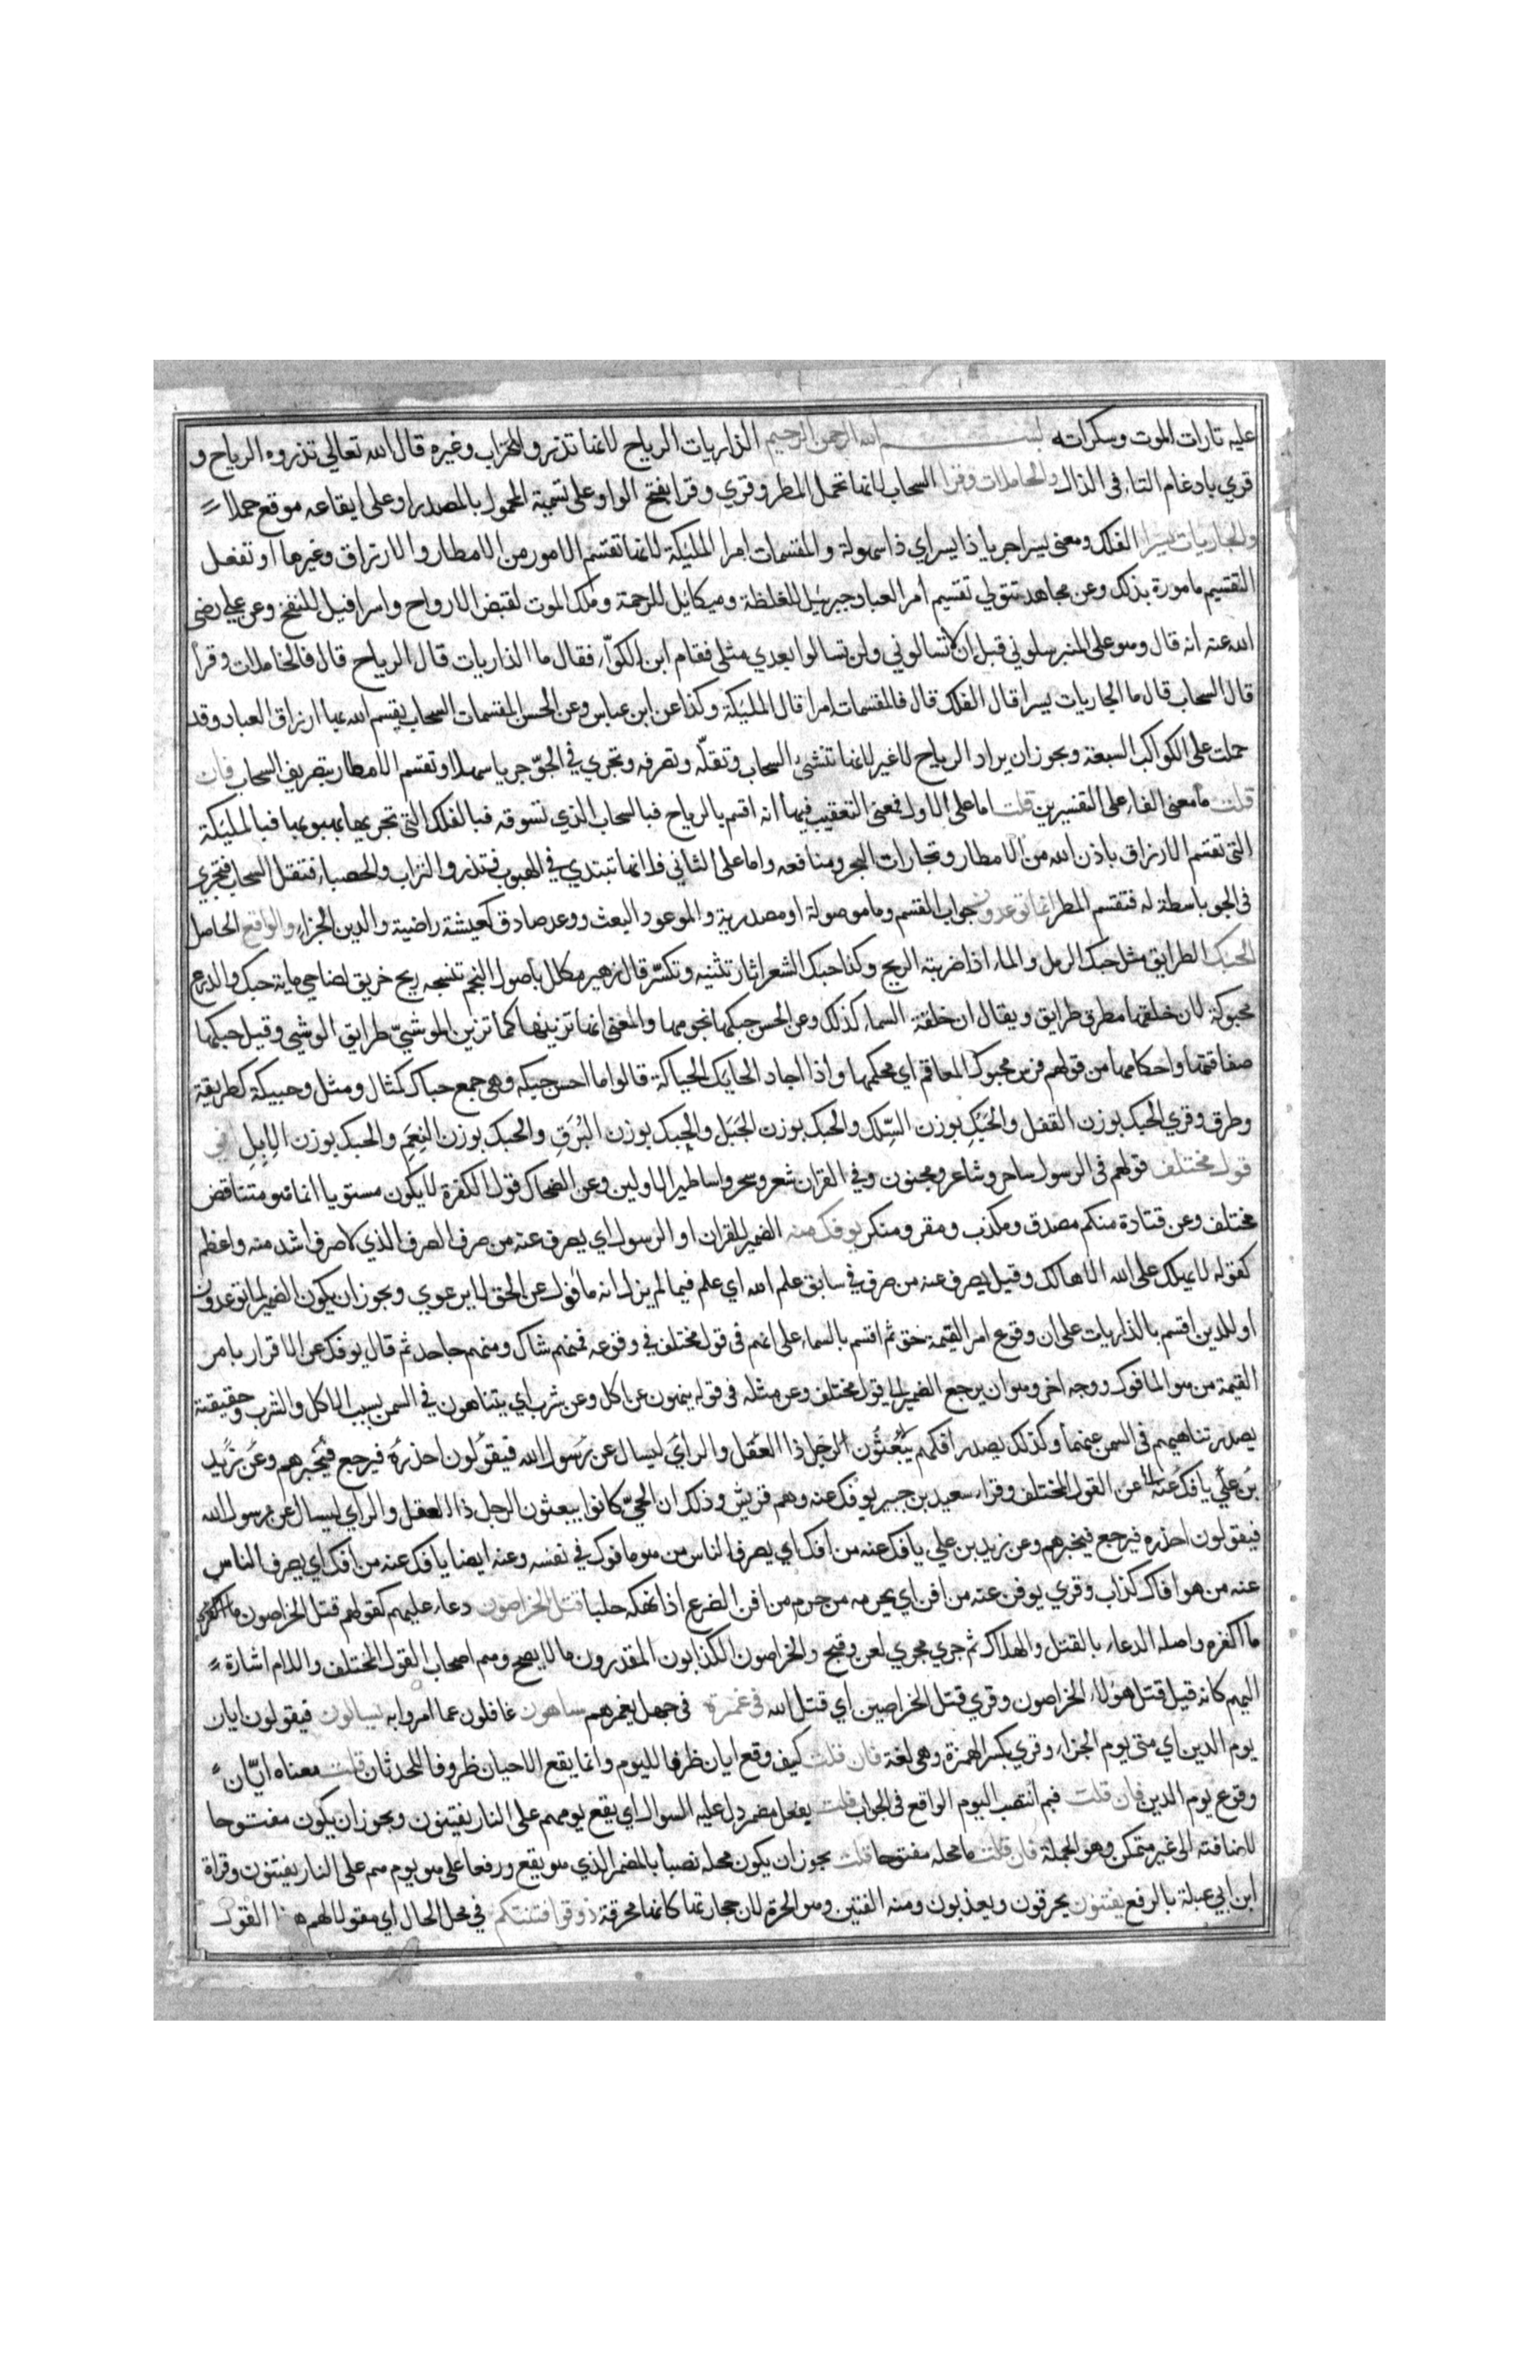 عليه تارات الموت وسكراته بسم الله الرحمن الرحيم الذاريات الرياح لانها تذرو التراب وغيره قال الله تعالى تذروه الرياح و
قري بادغام التاء في الذال والحاملات وقرا السحاب لانها تحمل المطر وقري وقرا بفتح الواو على تسمية المحمول بالمصدر او على ايقاعه موقع حملا
والجاريات يسرا الفلك ومعنى يسرا جريا ذا يسر اي ذا سهولة والمقسمات امرا المليكة لانها تقسم الامور من الامطار والارزاق وغيرها او تفعل
التقسيم مامورة بذلك وعن مجاهد تتولي تقسيم امر العباد جبرئيل للغلظة وميكائيل للرحمة وملك الموت لقبض الارواح واسرافيل للنفخ وعن علي رضي
الله عنه انه قال وهو على المنبر سلوني قبل ان لا تسالوني ولن تسالوا بعدي مثلي فقام ابن الكوّاء فقال ما الذاريات قال الرياح قال فالحاملات وقرا
قال السحاب قال ما الجاريات يسرا قال الفلك قال فالمقسمات امرا قال المليكة وكذا عن ابن عباس وعن الحسن المقسمات السحاب يقسم الله بها ارزاق العباد وقد
حملت على الكواكب السبعة ويجوز ان يراد الرياح لا غير لانها تنشئ السحاب وتقلّه وتصرفه وتجري في الجوّ جريا سهلا وتقسم الامطار بتصريف السحاب فان
قلت ما معنى الفاء على التفسيرين قلت اما على الاول فمعنى التعقيب فيها انه اقسم بالرياح فبالسحاب الذي تسوقه فبالفلك التي تجريها بهبوبها فبالمليكة
التي تقسم الارزاق باذن الله من الامطار وتجارات البحر ومنافعه واما على الثاني فلانها تبتدي في الهبوب فتذرو التراب والحصباء فتقل السحاب فتجري
في الجو باسطة له فتقسم المطر انما توعدون جواب القسم وما موصولة او مصدرية والموعود البعث ووعد صادق كعيشة راضية والدين الجزاء والواقع الحاصل
الحبك الطرايق مثل حبك الرمل والماء اذا ضربته الريح وكذا حبك الشعر اثار تثنيه وتكسّره قال زهير مكلل باصول النجم تنسجه ريح خريق لضاحي مايه حبك والدرع
محبوكة لان خلقها مطرق طرايق ويقال ان خلقة السماء كذلك وعن الحسن حبكها نجومها والمعنى انها تزينها كما تزين الموشيّ طرايق الوشي وقيل حبكها
صفاقتها واحكامها من قولهم فرس محبوك المعاقم اي محكمها واذا اجاد الحايك الحياكة قالوا ما احسن حبكه وهي جمع حباك كمثال ومثل وحبيكة كطريقة
وطرق وقري الحبك بوزن القفل والحبك بوزن السِّلك والحبك بوزن الجبل والحبك بوزن البُرَق والحبك بوزن النِعم والحبك بوزن الابِل اني
قول مختلف قولهم في الرسول ساحر وشاعر ومجنون وفي القران شعر وسحر واساطير الاولين وعن الضحاك قول الكفرة لا يكون مستويا انما هو متناقض
مختلف وعن قتادة منكم مصدق ومكذب ومقر ومنكر يوفك عنه الضمير للقران او الرسول اي يصرف عنه من صرف الصرف الذي لا صرف اشد منه واعظم
كقوله لا يهلك على الله الا هالك وقيل يصرف عنه من صرف في سابق علم الله اي علم فيما لم يزل انه مافوك عن الحق لا يرعوي ويجوز ان يكون الضمير لما توعدون
او للدين اقسم بالذاريات على ان وقوع امر القيمة حق ثم اقسم بالسماء على انهم في قول مختلف في وقوعه فمنهم شاك ومنهم جاحد ثم قال يوفك عن الاقرار بامر
القيمة من هو المافوك ووجه اخر وهو ان يرجع الضمير الى قول مختلف وعن مثله في قوله ينهون عن اكل وعن شرب اي يتناهون في السمن بسبب الاكل والشرب وحقيقته
يصدر تناهيهم في السمن عنهما وكذلك يصدر افكهم يبعثون الرجل ذا العقل والراي ليسال عن رسول الله فيقولون احذره فيرجع فيخبرهم وعن زيد
بن علي يافك عنه عن القول المختلف وقراء سعيد بن جبير يوفك عنه وهم قريش وذلك ان الحيّ كانوا يبعثون الرجل ذا العقل والراي ليسال عن رسول الله
فيقولون احذره فيرجع فيخبرهم وعن زيد بن علي يافك عنه من افك اي يصرف الناس من هو مافوك في نفسه وعنه ايضا يافك عنه من افك اي يصرف الناس
عنه من هو افاك كذاب وقري يوفن عنه من افن اي يحرمه من حرم من افن الضرع اذا نهكه حلبا قتل الخراصون دعاء عليهم كقولهم قتل الخراصون ما اكفره
ما اكفره واصله الدعاء بالقتل والهلاك ثم جري مجري لعن وقبح والخراصون الكذابون المقدرون ما لا يصح وهم اصحاب القول المختلف واللام اشارة
اليهم كانه قيل قتل هؤلاء الخراصون وقري قتل الخراصين اي قتل الله في غمرة في جهل يغمرهم ساهون غافلون عما امروا به يسالون فيقولون ايان
يوم الدين اي متى يوم الجزاء وقري بكسر الهمزة وهي لغة فان قلت كيف وقع ايان ظرفا لليوم وانما يقع الاحيان ظروفا للحدثان قلت معناه ايّان
وقوع يوم الدين فان قلت فبم انتصب اليوم الواقع في الجواب قلت بفعل مضمر دل عليه السوال اي يقع يومهم على النار يفتنون ويجوز ان يكون مفتوحا
لاضافته الى غير متمكن وهو الجملة فان قلت ما محله مفتوحا قلت يجوز ان يكون محله نصبا بالمضمر الذي هو يقع ورفعا على هو يوم هم على النار يفتنون وقراة
ابن ابي عبلة بالرفع يفتنون يحرقون ويعذبون ومنه الفتين وهو الحرة لان حجارتها كانها محرقة ذوقوا فتنتكم في محل الحال اي مقولا لهم هذا القول